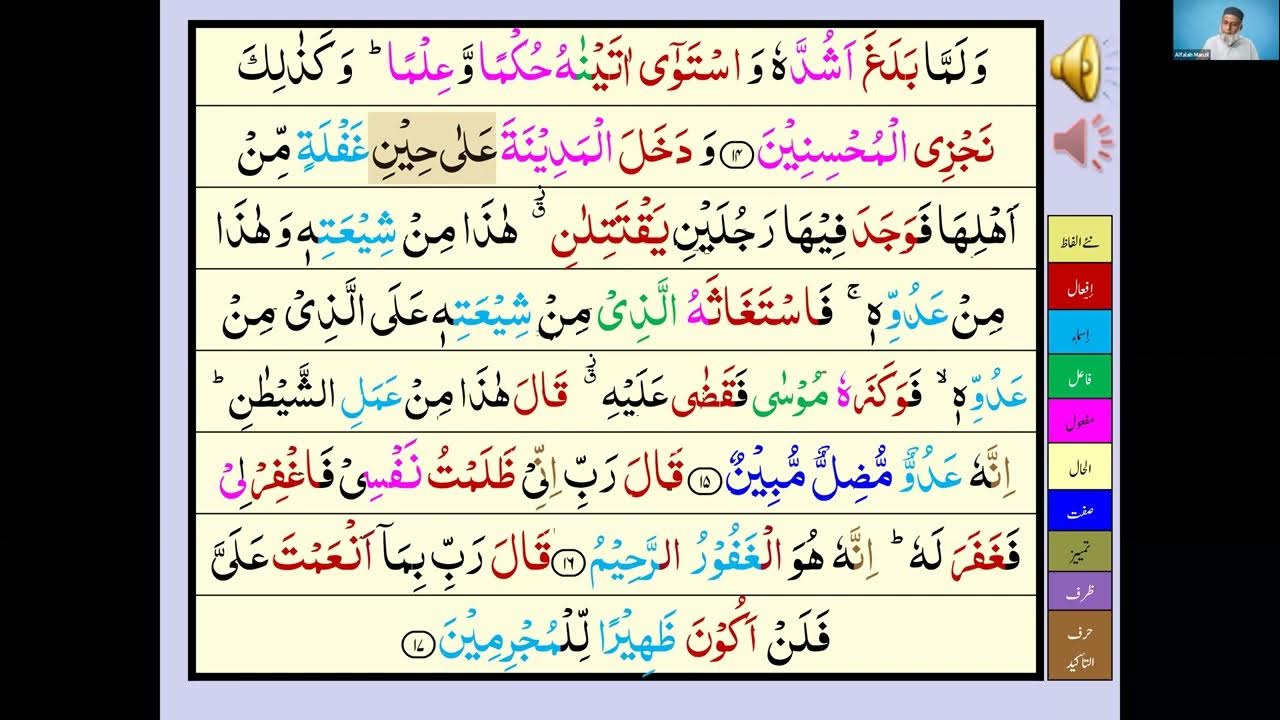 وَلَمَّا بَلَغَ اَشُدَّهٗ وَ اسْتَوٰۤى اٰتَیْنٰهُ حُكْمًا وَّ عِلْمًا ؕ وَ كَذٰلِكَ
نَجْزِی الْمُحْسِنِیْنَ ﴿۱۴﴾ وَ دَخَلَ الْمَدِیْنَةَ عَلٰی حِیْنِ غَفْلَةٍ مِّنْ
اَهْلِهَا فَوَجَدَ فِیْهَا رَجُلَیْنِ یَقْتَتِلٰنِ ؗۗ هٰذَا مِنْ شِیْعَتِهٖ وَ هٰذَا
مِنْ عَدُوِّهٖ ۚ فَاسْتَغَاثَهُ الَّذِیْ مِنْ شِیْعَتِهٖ عَلَی الَّذِیْ مِنْ
عَدُوِّهٖ ۙ فَوَكَزَهٗ مُوْسٰی فَقَضٰی عَلَیْهِ ؗۗ قَالَ هٰذَا مِنْ عَمَلِ الشَّیْطٰنِ ؕ
اِنَّهٗ عَدُوٌّ مُّضِلٌّ مُّبِیْنٌ ﴿۱۵﴾ قَالَ رَبِّ اِنِّیْ ظَلَمْتُ نَفْسِیْ فَاغْفِرْ لِیْ
فَغَفَرَ لَهٗ ؕ اِنَّهٗ هُوَ الْغَفُوْرُ الرَّحِیْمُ ﴿۱۶﴾ قَالَ رَبِّ بِمَاۤ اَنْعَمْتَ عَلَیَّ
فَلَنْ اَكُوْنَ ظَهِیْرًا لِّلْمُجْرِمِیْنَ ﴿۱۷﴾
نئے الفاظ
اِفعال
اِسماء
فاعل
مفعول
الحال
صفت
تمییز
ظرف
حرف
التاکید
Alfalah Manzil